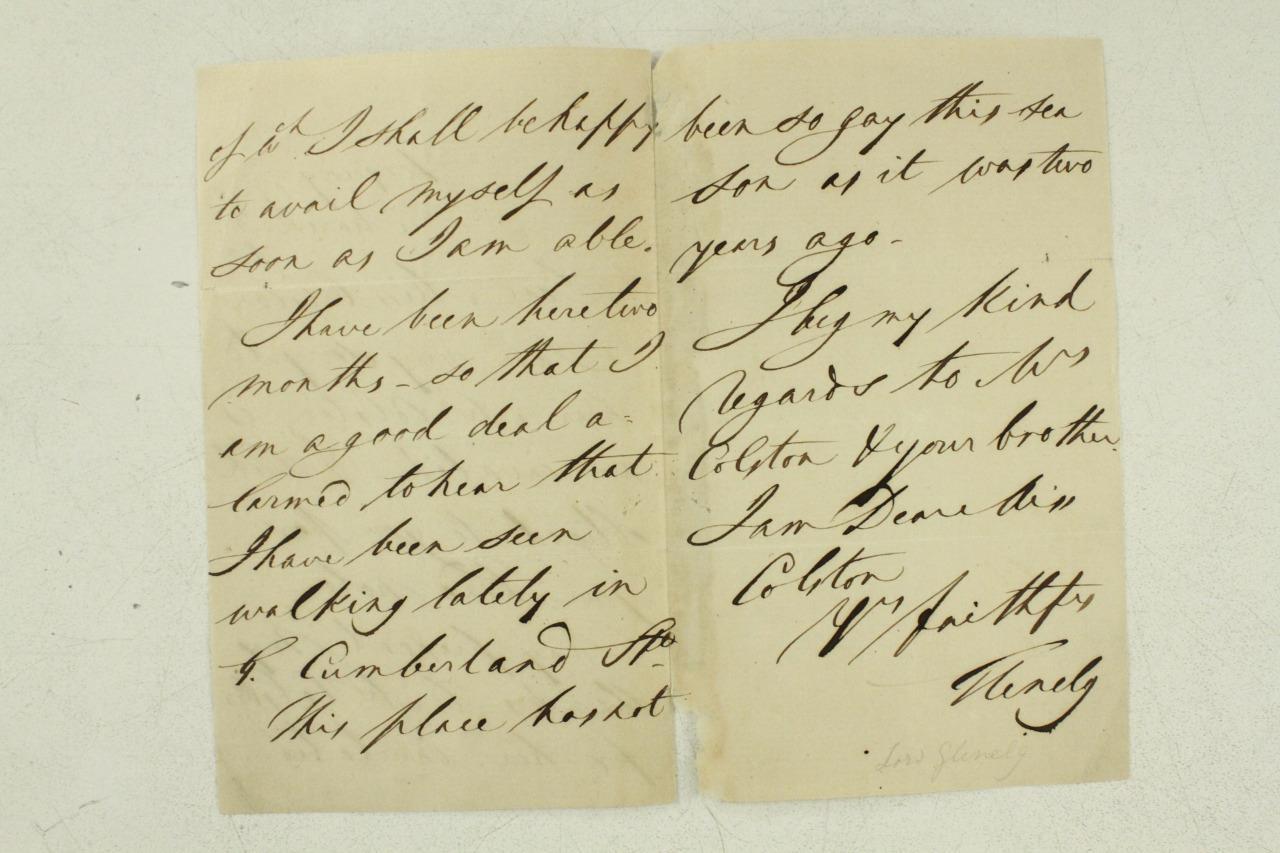 of wch I shall be happy
to avail myself as
soon as I am able.
I have been here two
months - so that I
am a good deal a=
larmed to hear that
I have been seen
walking lately in
G. Cumberland St
This place has not
been so gay this sea
son as it was two
years ago -
I beg my kind
regards to Mrs
Colston & your brother.
I am Dear Miss
Colston
Yrs faithfy
Glenelg
Lord Glenelg